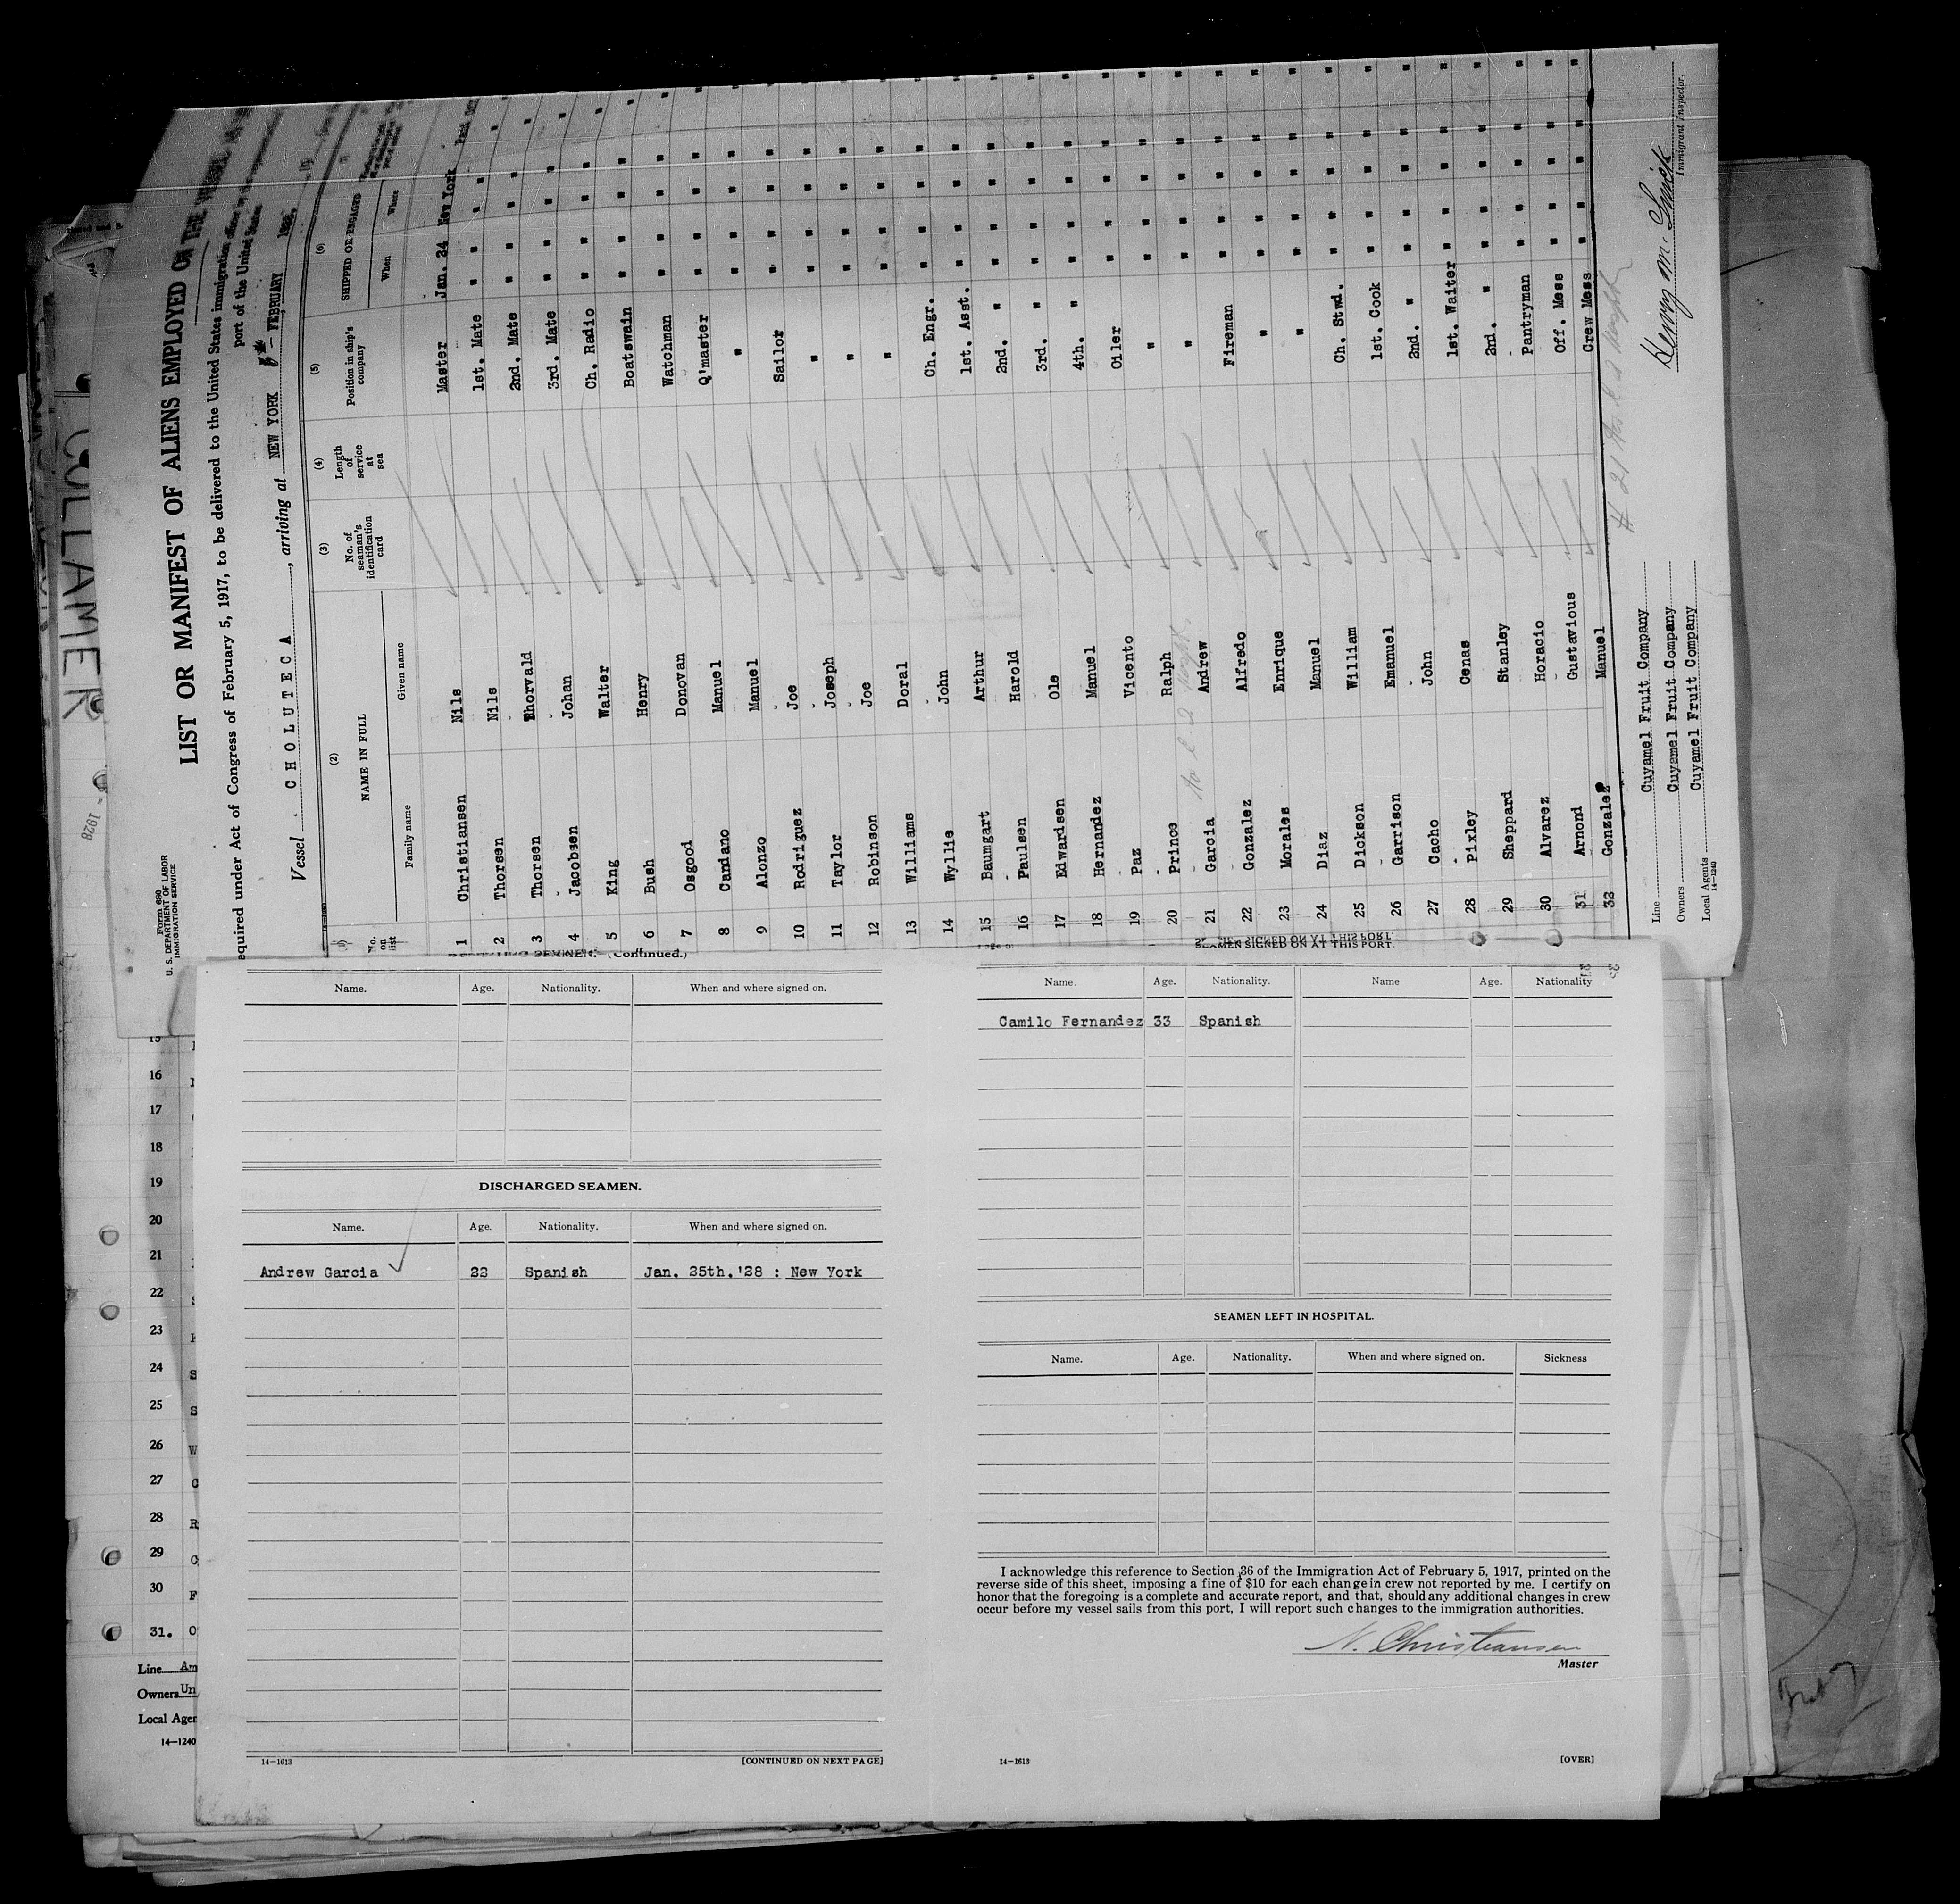 COLLAMER
- 1928
Form 680
U. S. DEPARTMENT OF LABOR
IMMIGRATION SERVICE
LIST OR MANIFEST OF ALIENS EMPLOYED ON THE VESSEL
equired under Act of Congress of February 5, 1917, to be delivered to the United States immigration officer
port of the United States
Vessel CHOLUTECA, arriving at NEW YORK FEBRUARY
(1) (2) (3) (4) (5) (6)
No. on list NAME IN FULL No. of seaman's identification card Length of service at sea Position in ship's company SHIPPED OR ENGAGED
Family name Given name When Where
1 Christiansen Nils Master Jan. 24 New York
2 Thorsen Nils 1st. Mate " "
3 Thorsen Thorvald 2nd. Mate " "
4 Jacobsen Johan 3rd. Mate " "
5 King Walter Ch. Radio " "
6 Bush Henry Boatswain " "
7 Osgood Donovan Watchman " "
8 Candano Manuel Q'master " "
9 Alonzo Manuel " " "
10 Rodriguez Joe Sailor " "
11 Taylor Joseph " " "
12 Robinson Joe " " "
13 Williams Doral " " "
14 Wyllie John Ch. Engr. " "
15 Baumgart Arthur 1st. Asst. " "
16 Paulsen Harold 2nd. " " "
17 Edwardsen Ole 3rd. " " "
18 Hernandez Manuel 4th. " " "
19 Paz Vicento Oiler " "
20 Prince Ralph " " "
21 Garcia Andrew " " "
22 Gonzalez Alfredo Fireman " "
23 Morales Enrique " " "
24 Diaz Manuel " " "
25 Dickson William Ch. Stwd. " "
26 Garrison Emanuel 1st. Cook " "
27 Cacho John 2nd. " " "
28 Pixley Cenas 1st. Waiter " "
29 Sheppard Stanley 2nd. " " "
30 Alvarez Horacio Pantryman " "
31 Arnond Gustavious Off. Mess " "
32 Gonzalez Manuel Crew Mess " "
Line Cuyamel Fruit Company
Owners Cuyamel Fruit Company
Local Agents Cuyamel Fruit Company
14-1240
Immigrant Inspector.
(Continued.)
Name. Age. Nationality. When and where signed on.
DISCHARGED SEAMEN.
Name. Age. Nationality. When and where signed on.
Andrew Garcia 22 Spanish Jan. 25th.'28 : New York
14—1613 [CONTINUED ON NEXT PAGE]
SEAMEN SIGNED ON AT THIS PORT.
Name. Age. Nationality. Name Age. Nationality
Camilo Fernandez 33 Spanish
SEAMEN LEFT IN HOSPITAL.
Name. Age. Nationality. When and where signed on. Sickness
I acknowledge this reference to Section 36 of the Immigration Act of February 5, 1917, printed on the
reverse side of this sheet, imposing a fine of $10 for each change in crew not reported by me. I certify on
honor that the foregoing is a complete and accurate report, and that, should any additional changes in crew
occur before my vessel sails from this port, I will report such changes to the immigration authorities.
N. Christiansen
Master
14—1613 [OVER]
15
16
17
18
19
20
21
22
23
24
25
26
27
28
29
30
31.
Line Am
Owners Un
Local Agen
14—1240